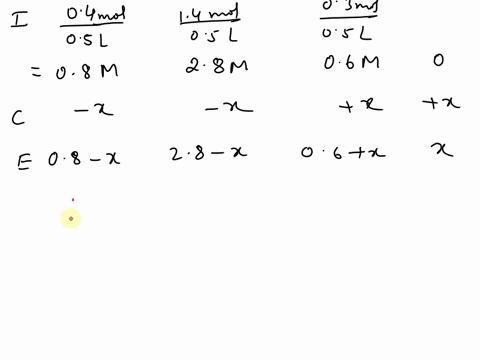 I 0.4 mol/0.5 L 1.4 mol/0.5 L 0.3 mol/0.5 L
= 0.8 M 2.8 M 0.6 M 0
C -x -x +x +x
E 0.8-x 2.8-x 0.6+x x